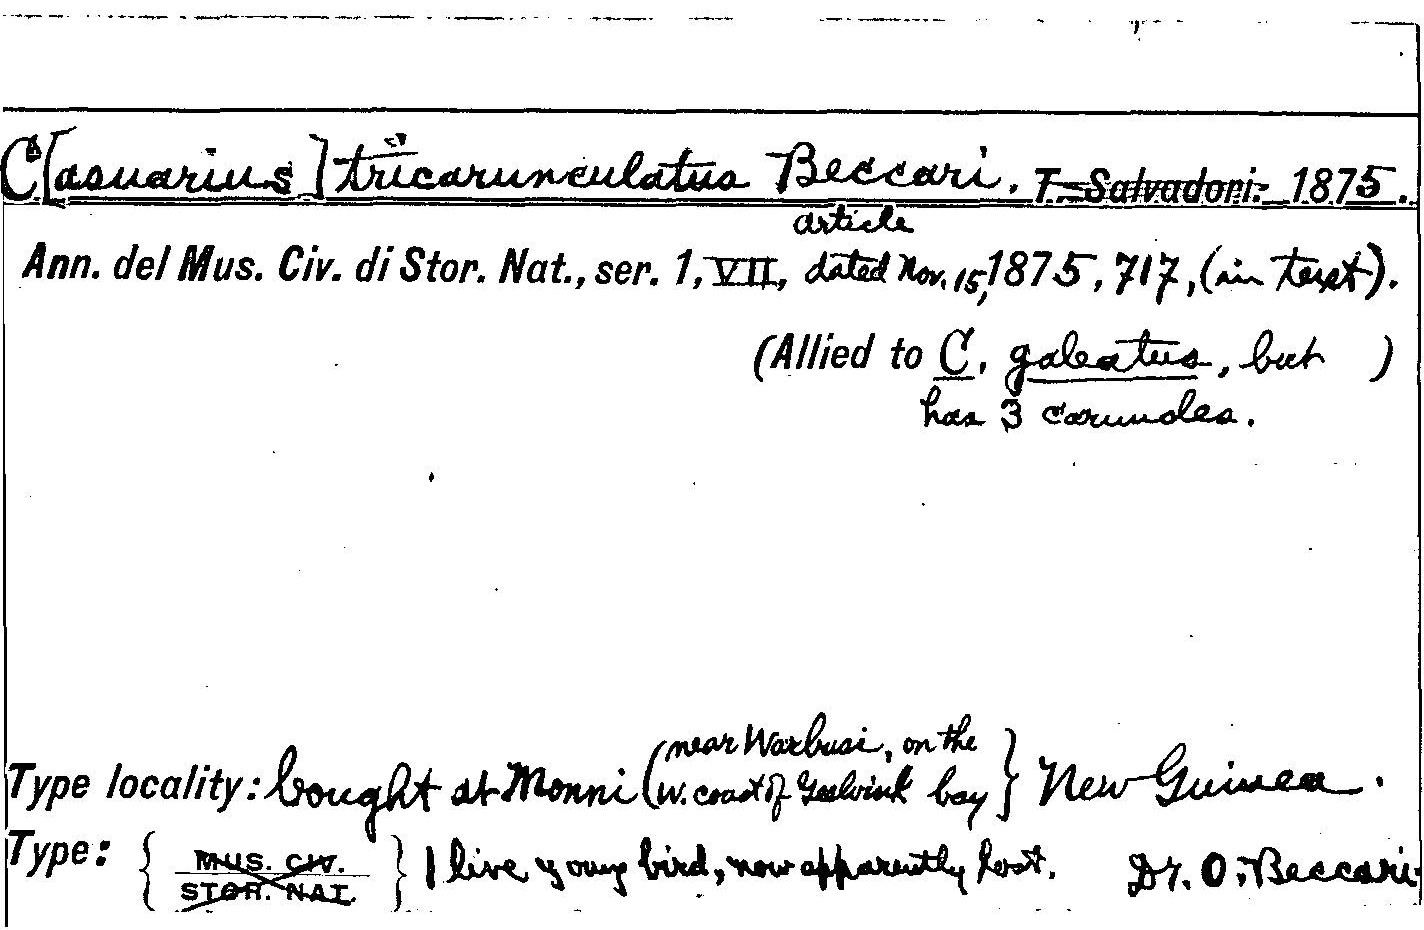 C[asuarius] tricarunculatus Beccari. T. Salvadori. 1875.
article
Ann. del Mus. Civ. di Stor. Nat., ser. 1, VII, dated Nov. 15, 1875, 717, (in text).
(Allied to C. galeatus, but )
has 3 caruncles.
near Warbusi, on the
Type locality: bought at Monni (W. coast of Geelvink bay) New Guinea.
Type: { MUS. CIV. STOR. NAT. } 1 live young bird, now apparently lost. Dr. O. Beccari